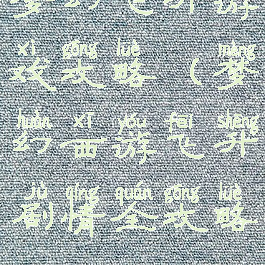 梦幻西游飞升游
xì gōng lüè mèng
戏攻略（梦
huàn xī yóu fēi shēng
幻西游飞升
jù qíng quán gōng lüè
剧情全攻略